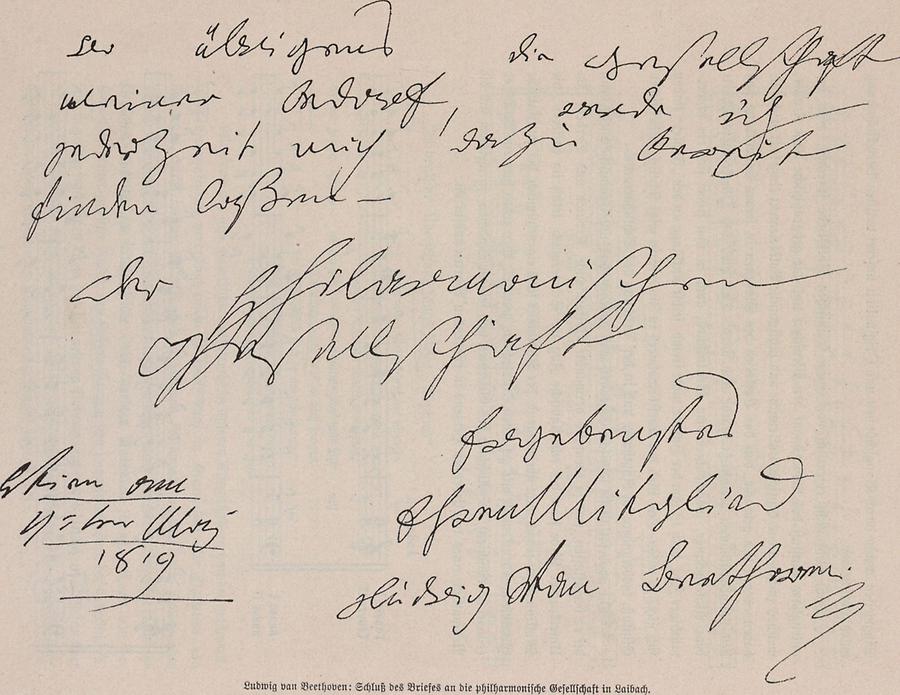 übrigens die Gesellschaft
meiner bedarf, werde ich
jederzeit mich dazu bereit
finden laßen —
der philarmonischen
Gesellschaft
Ergebenstes
EhrenMitglied
Ludwig van Beethoven.
Wien am
4=ten May
1819
Ludwig van Beethoven: Schluß des Briefes an die philharmonische Gesellschaft in Laibach.